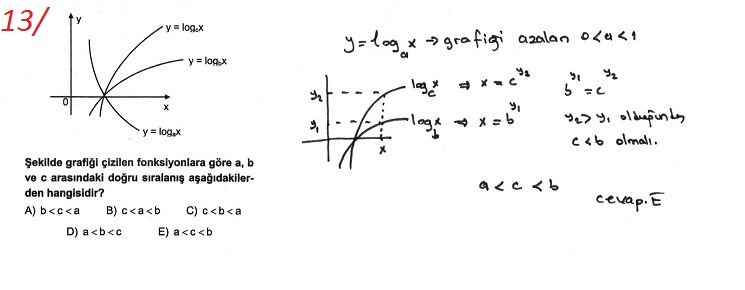 13/
y
y = logcx
y = logbx
0
x
y = logax
Şekilde grafiği çizilen fonksiyonlara göre a, b
ve c arasındaki doğru sıralanış aşağıdakiler-
den hangisidir?
A) b<c<a B) c<a<b C) c<b<a
D) a<b<c E) a<c<b
y = logax → grafiği azalan 0<a<1
y2
logcx ⇒ x = c^y2
b^y1 = c^y2
y1
logbx ⇒ x = b^y1
y2 > y1 olduğundan
x
c<b olmalı.
a < c < b
cevap. E